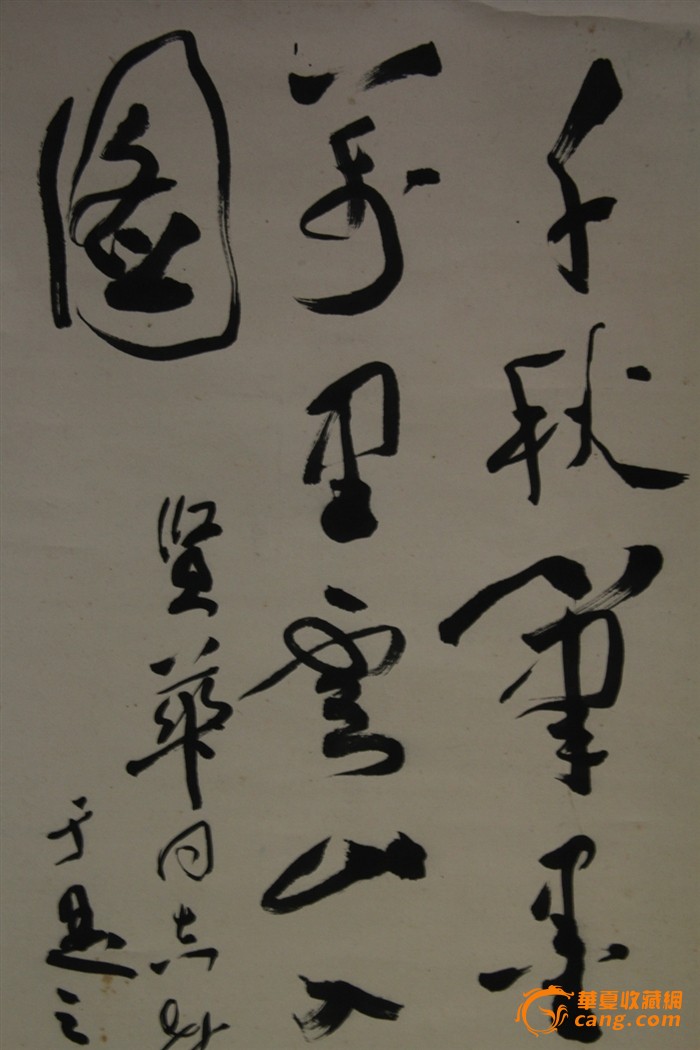 千秋筆墨
萬里雲山入
圖
華同志
于是之
華夏收藏網
cang.com